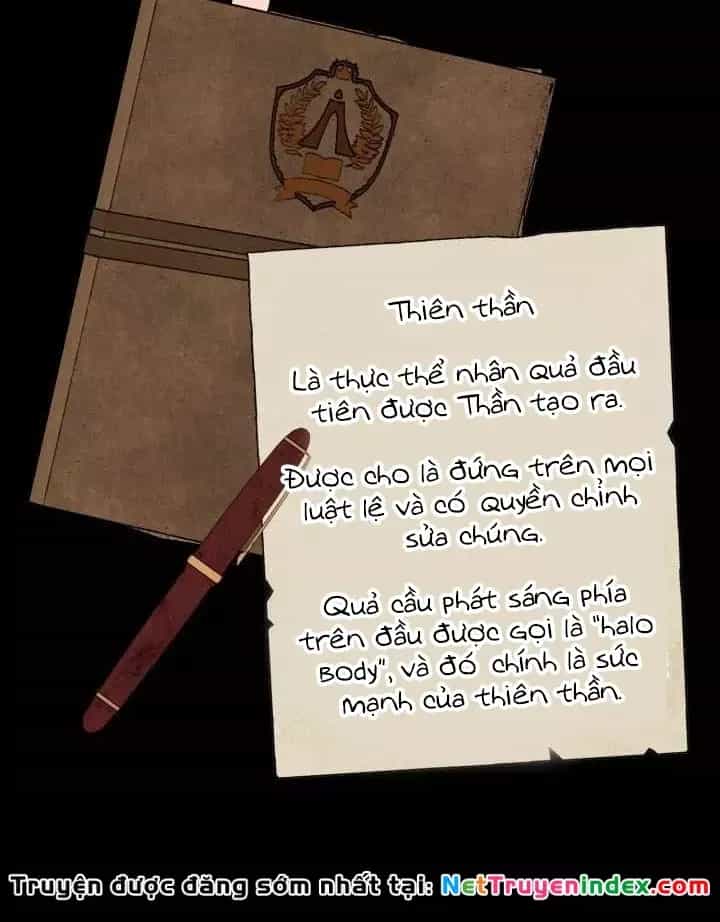 Thiên thần
Là thực thể nhân quả đầu
tiên được Thần tạo ra.
Được cho là đứng trên mọi
luật lệ và có quyền chỉnh
sửa chúng.
Quả cầu phát sáng phía
trên đầu được gọi là "halo
Body", và đó chính là sức
mạnh của thiên thần.
Truyện được đăng sớm nhất tại: NetTruyenIndex.com